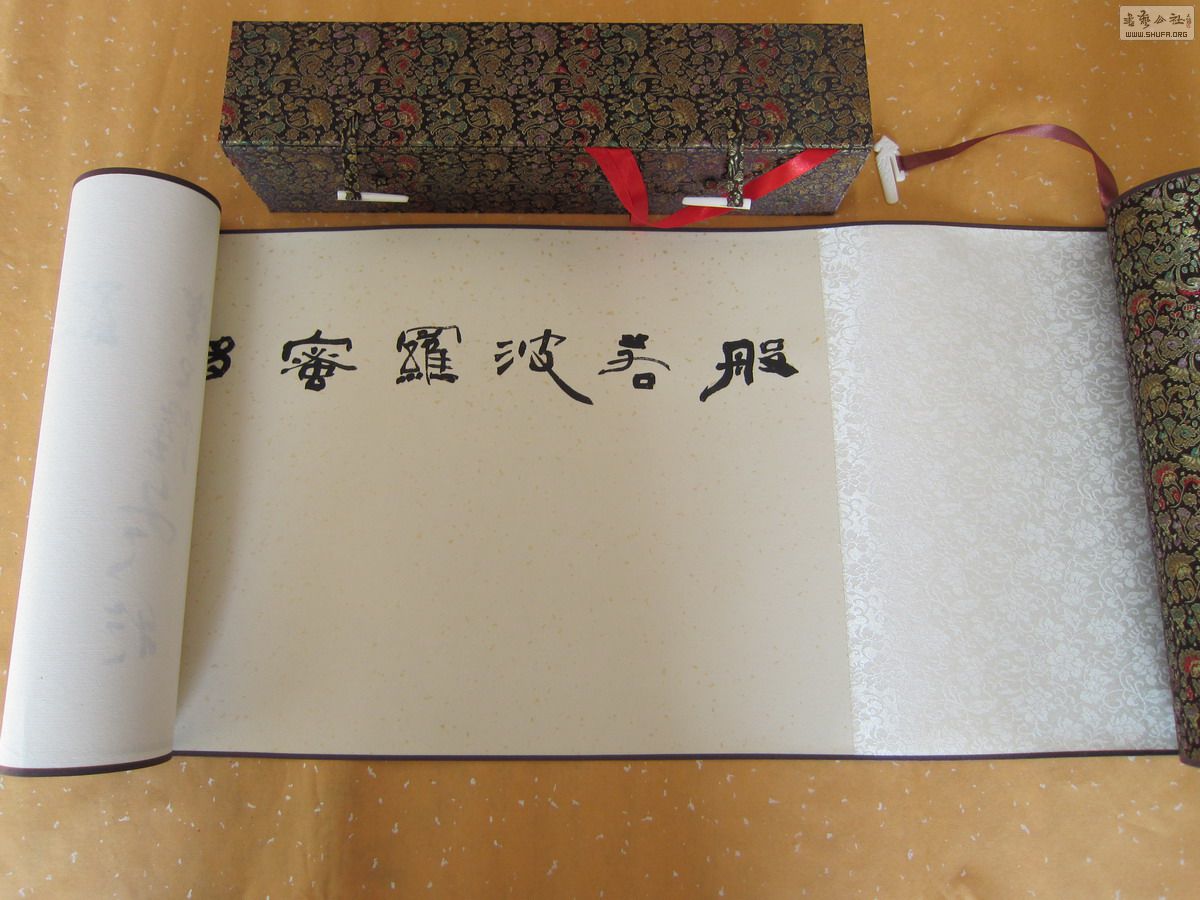 般若波羅蜜
書藝公社
WWW.SHUFA.ORG